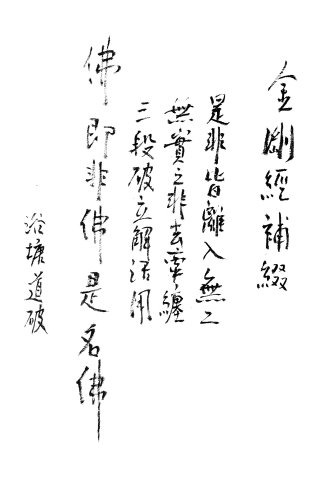 金剛經補綴
是非皆離入無二
無實之非去牽纏
三段破立解活用
佛即非佛是名佛
浴塘道破